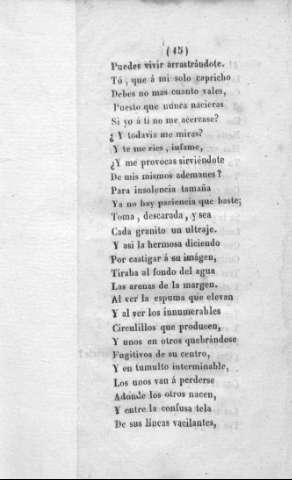 (45)
Puedes vivir arrastrándote.
Tó, que á mi solo capricho
Debes no mas cuanto vales,
Puesto que nunca nacieras
Si yo á ti no me acercase?
¿Y todavia me miras?
Y te me ries, infame,
¿Y me provocas sirviéndote
De mis mismos ademanes?
Para insolencia tamaña
Ya no hay paciencia que baste;
Toma, descarada, y sea
Cada granito un ultraje.
Y asi la hermosa diciendo
Por castigar á su imágen,
Tiraba al fondo del agua
Las arenas de la margen.
Al ver la espuma que elevan
Y al ver los innumerables
Circulillos que producen,
Y unos en otros quebrándose
Fugitivos de su centro,
Y en tumulto interminable,
Los unos van á perderse
Adónde los otros nacen,
Y entre la confusa tela
De sus líneas vacilantes,